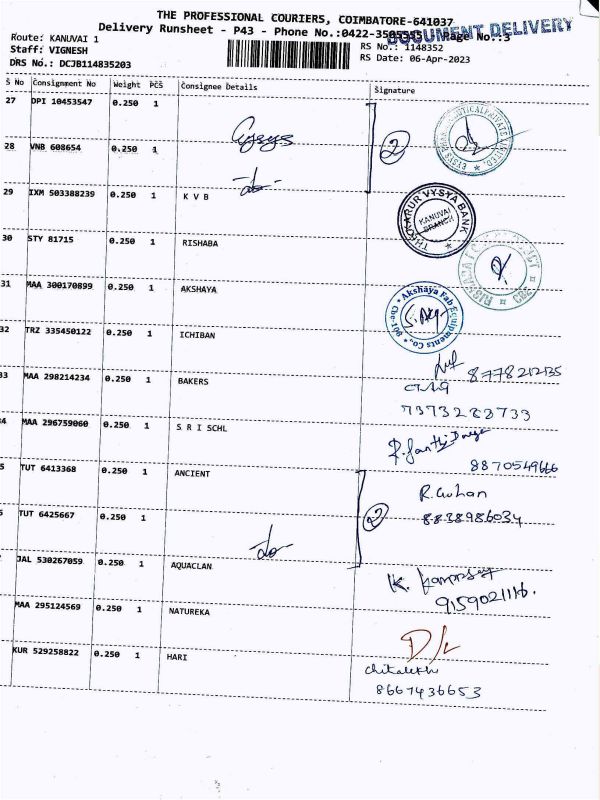 THE PROFESSIONAL COURIERS, COIMBATORE-641037
Delivery Runsheet - P43 - Phone No.:0422-3505555 Page No.:3
DOCUMENT DELIVERY
Route: KANUVAI 1
RS No.: 1148352
Staff: VIGNESH
RS Date: 06-Apr-2023
DRS No.: DCJB114835203
S No Consignment No Weight PCS Consignee Details Signature
27 DPI 10453547 0.250 1
2
28 VNB 608654 0.250 1
do
29 IXM 503388239 0.250 1 K V B
THE KARUR VYSYA BANK
KANUVAI BRANCH
30 STY 81715 0.250 1 RISHABA
31 MAA 300170899 0.250 1 AKSHAYA
Akshaya Fab Equipments Co.,
32 TRZ 335450122 0.250 1 ICHIBAN
33 MAA 298214234 0.250 1 BAKERS
7373283733
MAA 296759060 0.250 1 S R I SCHL
8870549666
TUT 6413368 0.250 1 ANCIENT
R. Guhan
8838986034
2
TUT 6425667 0.250 1
do
JAL 530267059 0.250 1 AQUACLAN
K.
MAA 295124569 0.250 1 NATUREKA
KUR 529258822 0.250 1 HARI
8667436653